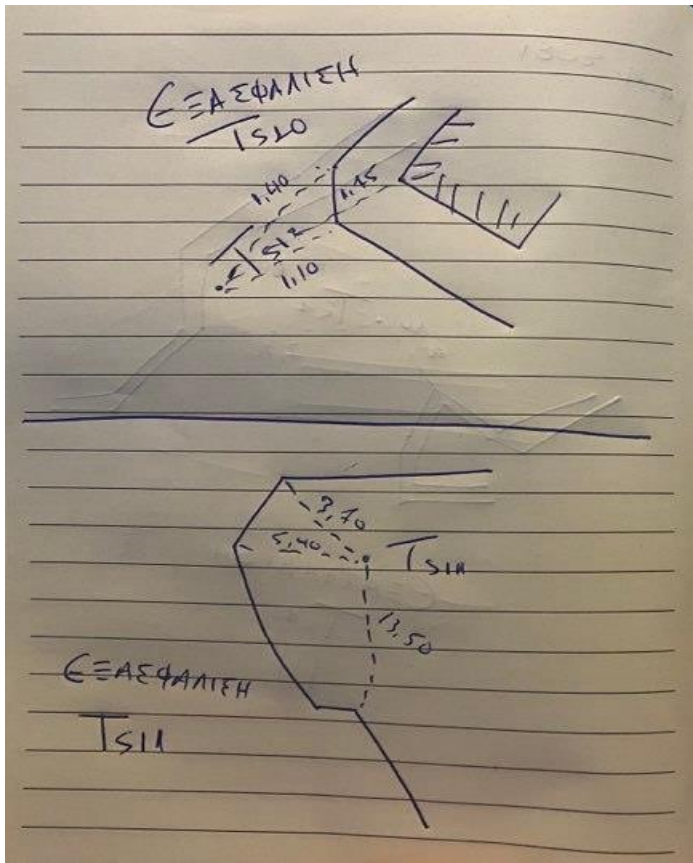 ΕΞΑΣΦΑΛΙΣΗ
TS10
1,40
1,10
3,70
5,40
TS11
13,50
ΕΞΑΣΦΑΛΙΣΗ
TS11